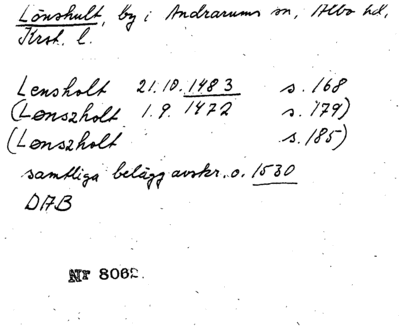 Lönshult, by i Andrarums sn, Albo hd,
Krist. l.
Lensholt 21.10.1483 s. 168
(Lønszholt 1.9.1472 s. 179)
(Lønszholt s. 185)
samtliga belägg avskr. o. 1530
DAB
Nr 8062.